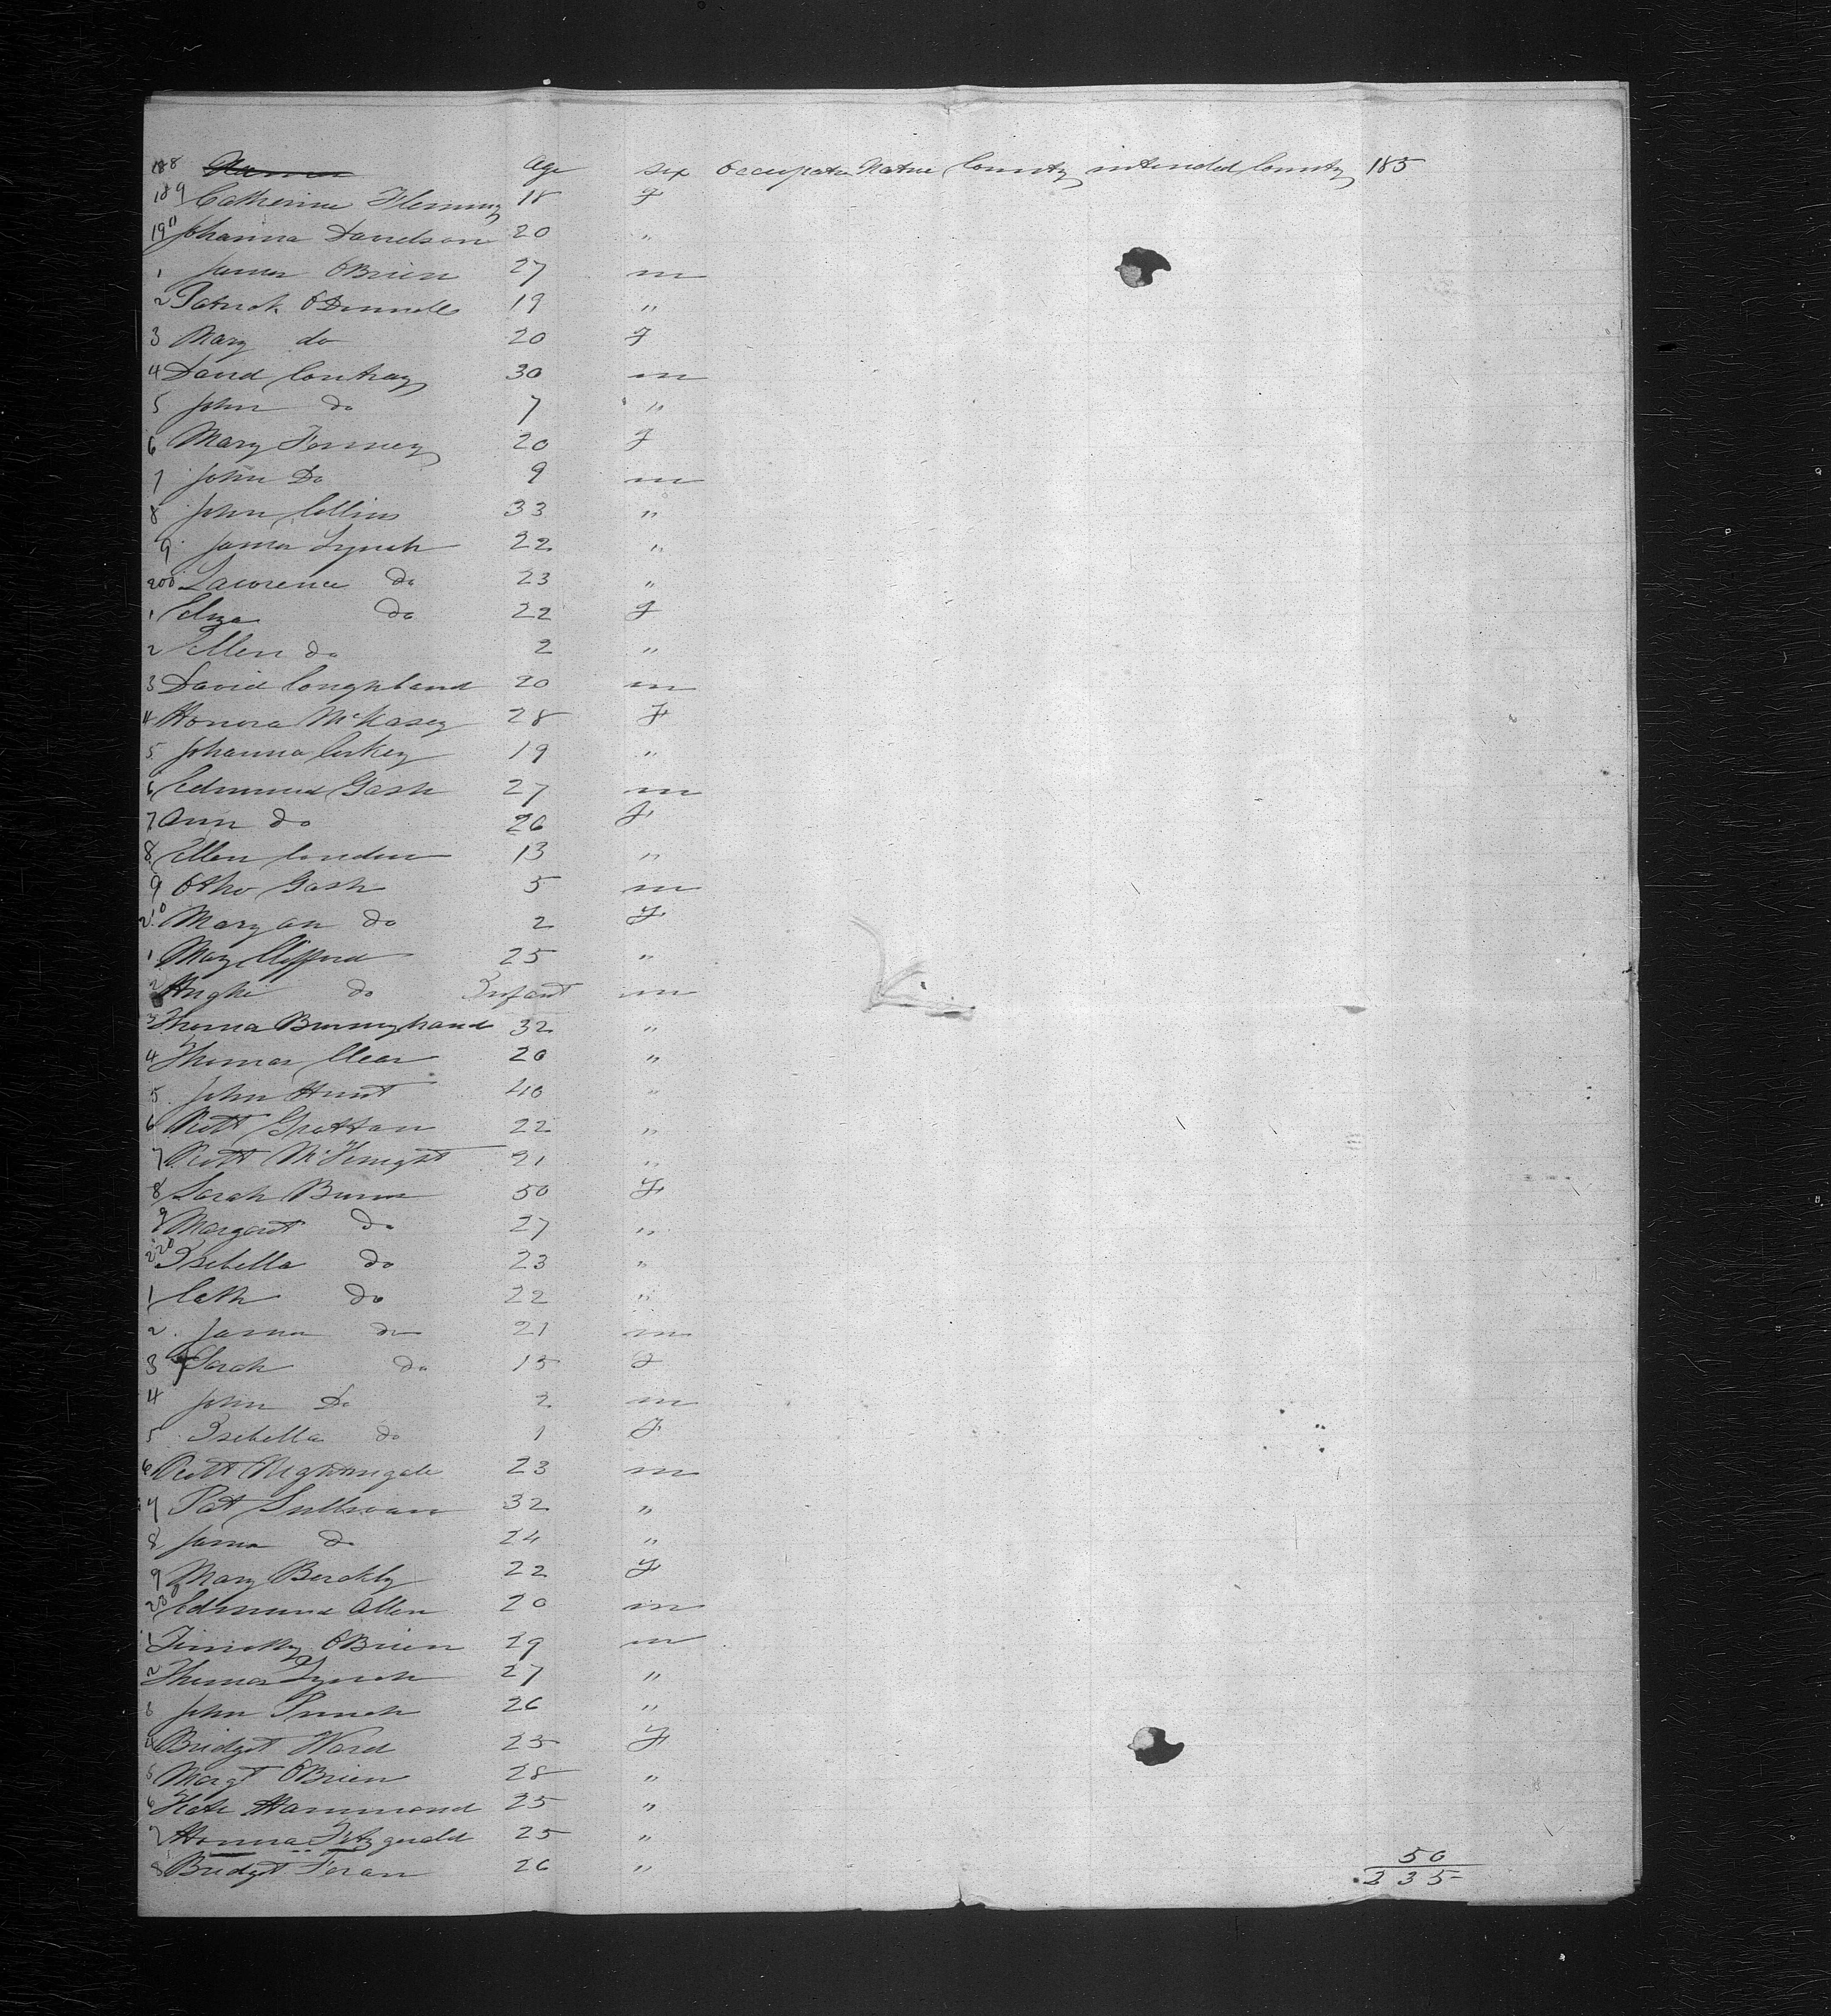 188 Names Age Sex Occupatn Native County intended County 185
189 Catherine Fleming 18 F
190 Johanna Davidson 20 "
1 James OBrien 27 m
2 Patrick ODonnell 19 "
3 Mary do 20 F
4 David Conhay 30 m
5 John do 7 "
6 Mary Fenney 20 F
7 John Do 9 m
8 John Collins 33 "
9 James Lynch 22 "
200 Lawrence do 23 "
1 Eliza do 22 F
2 Ellen do 2 "
3 David Coughland 20 m
4 Honora McKasey 28 F
5 Johanna Corkey 19 "
6 Edmund Gash 27 m
7 Ann do 26 F
8 Ellen Condon 13 "
9 Otho Gash 5 m
210 Mary an do 2 F
1 Mary Clifford 25 "
2 Hughe do Infant m
3 Thomas Burmyhand 32 "
4 Thomas Clear 20 "
5 John Hunt 40 "
6 Robt Grattan 22 "
7 Robt McKnight 21 "
8 Sarah Burns 50 F
9 Margaret do 27 "
220 Isabella do 23 "
1 Cath do 22 "
2 James do 21 m
3 Sarah do 15 F
4 John Do 2 m
5 Isabella do 1 F
6 Robt Nightingale 23 m
7 Pat Sullivan 32 "
8 James do 24 "
9 Mary Berckly 22 F
230 Edmund Allen 20 m
1 Timothy OBrien 29 m
2 Thomas Lynch 27 "
3 John 26 "
4 Bridget Ward 25 F
5 Margt OBrien 28 "
6 Kate Hammond 25 "
7 Honora Fitzgerald 25 "
8 Bridget Foran 26 "
50
235